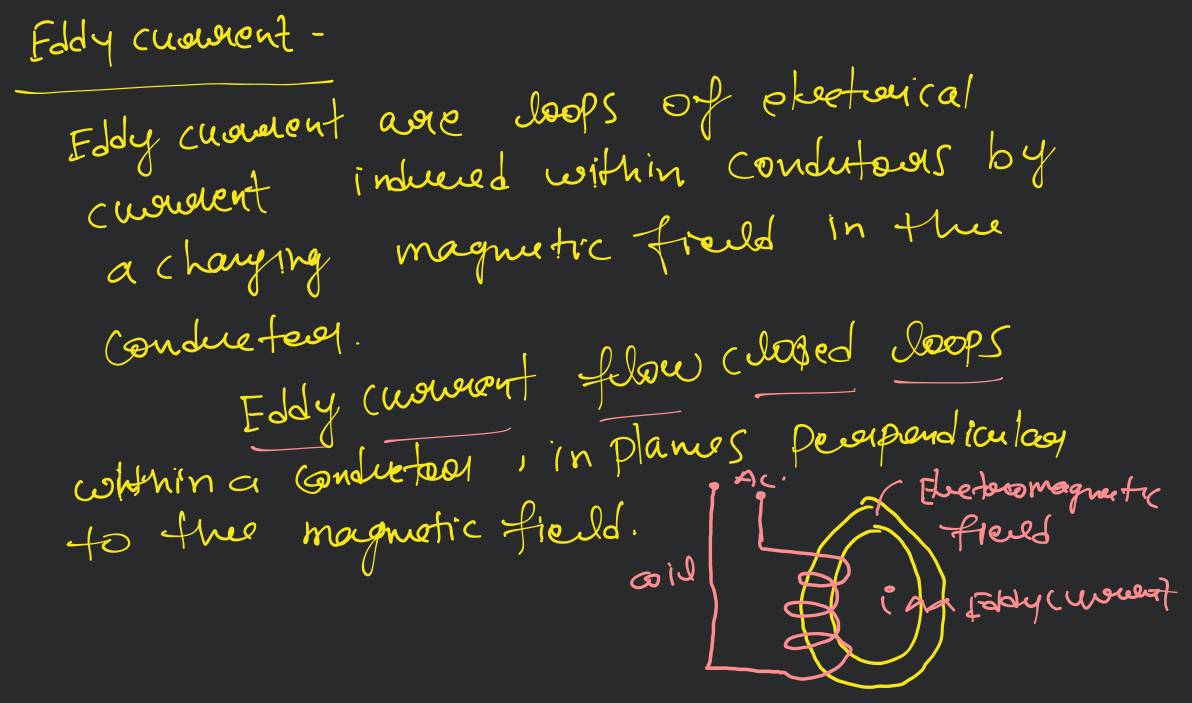 Eddy current -
Eddy current are loops of electrical
current induced within condutors by
a changing magnetic field in the
Conductor.
Eddy current flow closed loops
within a conductor, in planes perpendicular
to the magnetic field.
AC.
Electromagnetic
field
coil
i
Eddy current